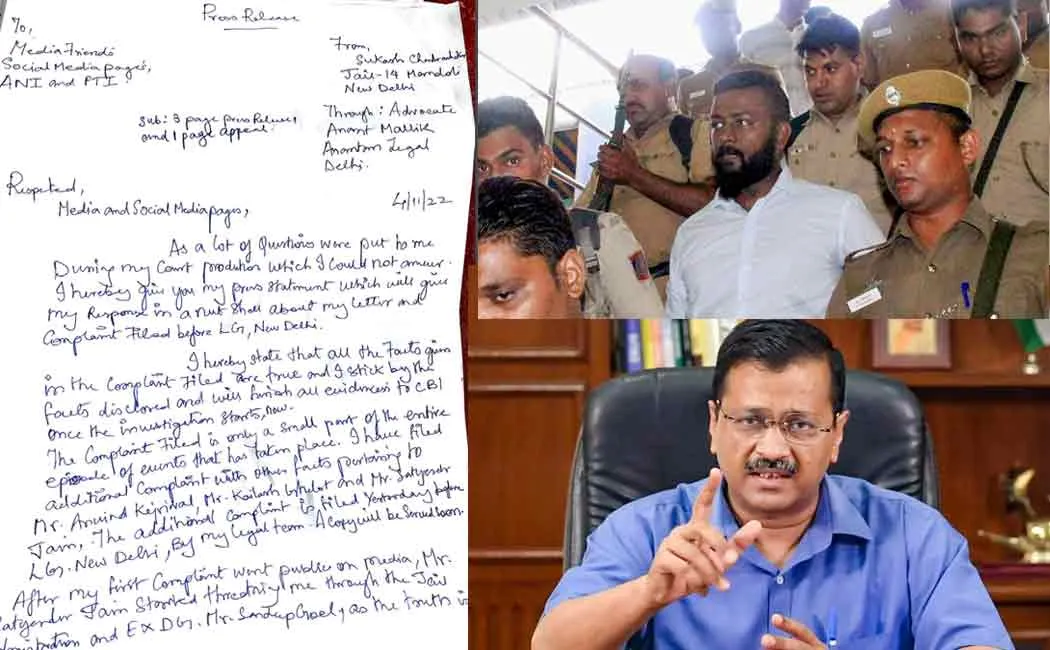 Press Release
To,
Media Friends
Social Media pages,
ANI and PTI.
From,
Sukash Chandrashekar
Jail-14 Mandoli
New Delhi
Through: Advocate
Anant Mallik
Anantam Legal
Delhi.
Sub: 3 page press Release,
and 1 page appeal.
Respeted,
4/11/22
Media and Social Media pages,
As a lot of Questions were put to me
During my Court prodution which I could not answer.
I hereby give you my press statement which will give
my Response in a nut shell about my letter and
Complaint Filed before LG, New Delhi.
I hereby state that all the facts given
in the Complaint Filed are true and I stick by the
facts disclosed and will furnish all evidences to CBI
once the investigation starts, now.
The Complaint Filed is only a small part of the entire
episode of events that has taken place. I have filed
additional Complaint with other facts pertaining to
Mr. Arvind Kejriwal, Mr. Kailash Gehlot and Mr. Satyender
Jain, The additional complaint is filed Yesterday before
LG. New Delhi, By my legal team. A copy will be served soon.
After my first Complaint went public on media, Mr.
Satyender Jain Started threatning me through the Jail
administration and EX DG. Mr. Sandeep Goel, as the truth is